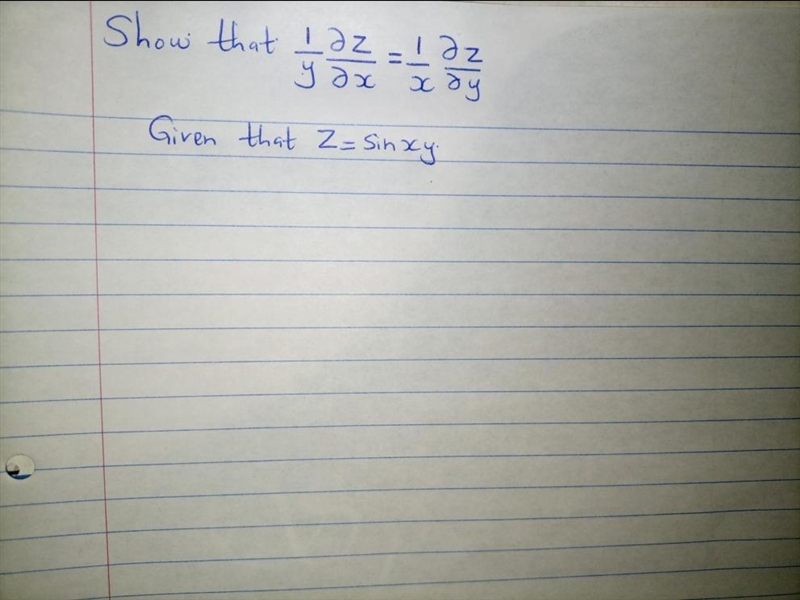 Show that 1/y ∂z/∂x = 1/x ∂z/∂y
Given that z = sinxy.